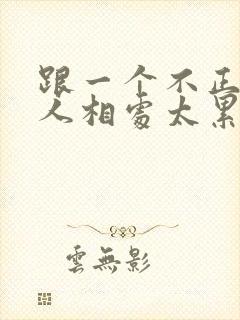 跟一个不正
人相處太累
雲無影